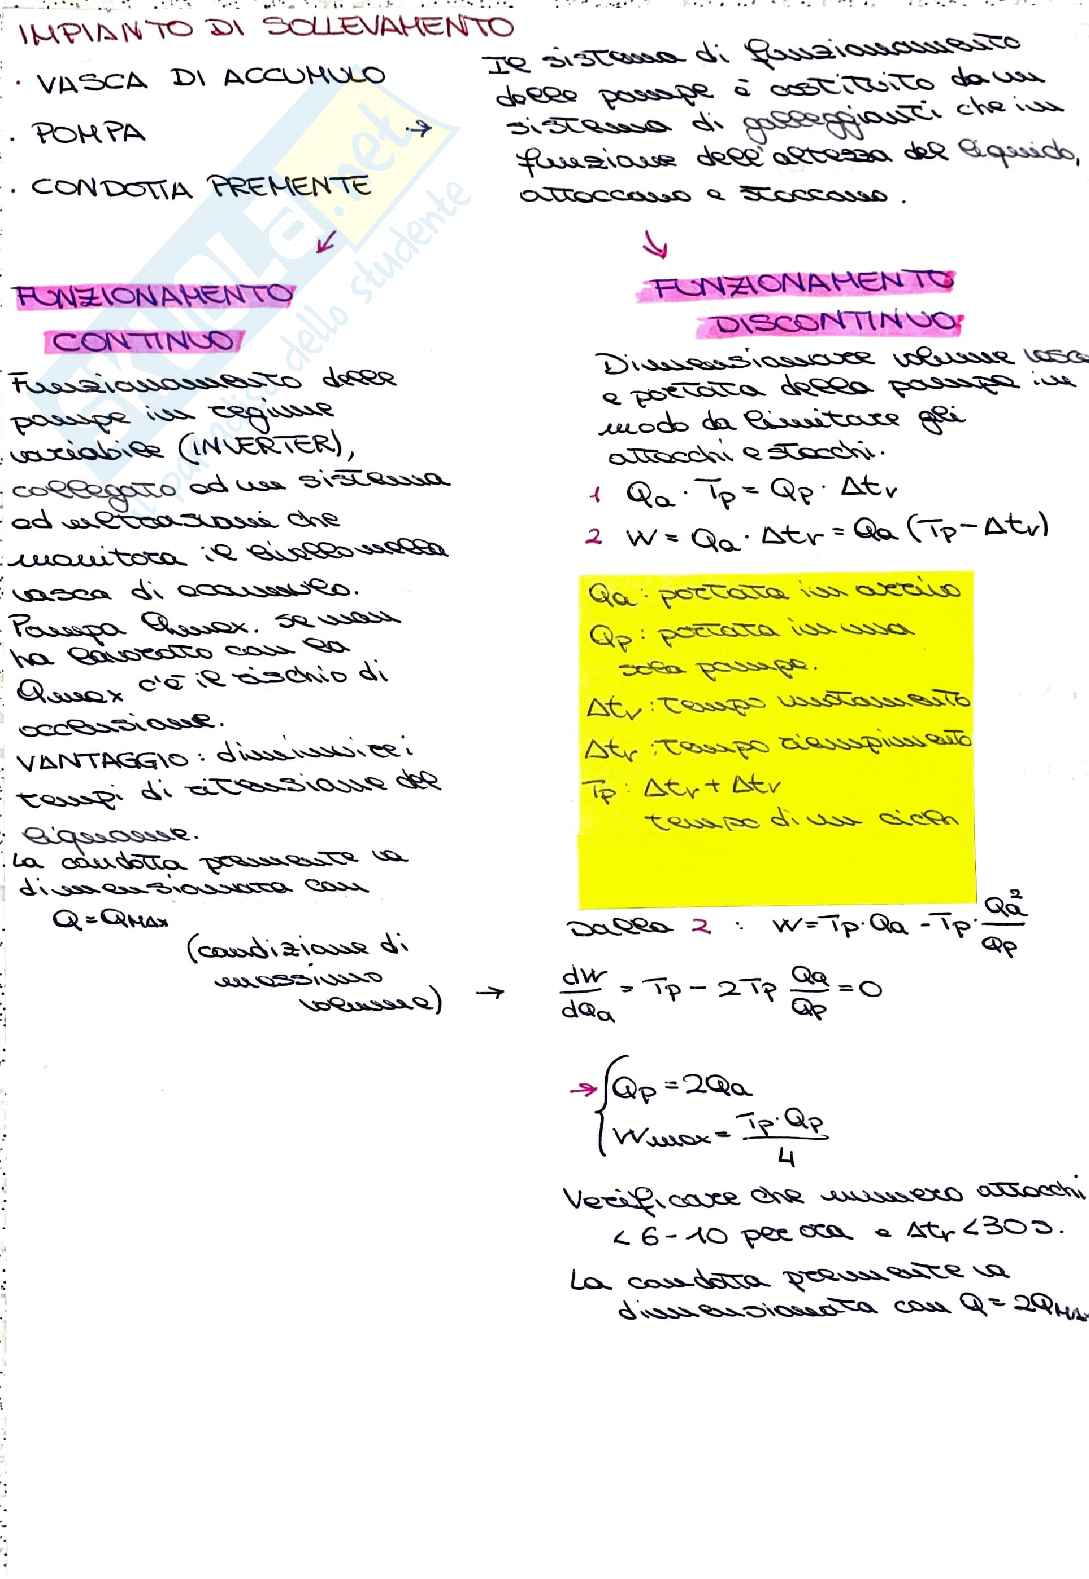 IMPIANTO DI SOLLEVAMENTO
· VASCA DI ACCUMULO
· POMPA
· CONDOTTA PREMENTE
→ Il sistema di funzionamento
delle pompe è costituito da un
sistema di galleggianti che in
funzione dell'altezza del liquido,
attaccano e staccano.
FUNZIONAMENTO
CONTINUO
Funzionamento delle
pompe in regime
variabile (INVERTER),
collegato ad un sistema
ad ultrasuoni che
monitora il livello nella
vasca di accumulo.
Pompa Qmax. se non
ha lavorato con la
Qmax c'è il rischio di
occlusione.
VANTAGGIO: diminuire i
tempi di ritenzione del
liquame.
La condotta premente va
dimensionata con
Q=QMAX
(condizione di
massimo
volume) →
FUNZIONAMENTO
DISCONTINUO
Dimensionare volume vasca
e portata della pompa in
modo da limitare gli
attacchi e stacchi.
1 Qa · Tp = Qp · Δtv
2 W = Qa · Δtr = Qa (Tp - Δtv)
Qa : portata in arrivo
Qp : portata in una
sola pompa.
Δtv : tempo svuotamento
Δtr : tempo riempimento
Tp : Δtr + Δtv
tempo di un ciclo
Dalla 2 : W = Tp · Qa - Tp · Qa²/Qp
dW/dQa = Tp - 2Tp Qa/Qp = 0
→ { Qp = 2Qa
Wmax = Tp · Qp / 4
Verificare che numero attacchi
< 6 - 10 per ora e Δtr < 30'.
La condotta premente va
dimensionata con Q = 2QMAX
SKUOLA.net
il paradiso dello studente